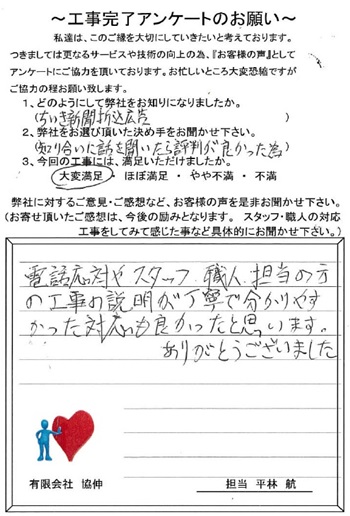 ～工事完了アンケートのお願い～
私達は、このご縁を大切にしていきたいと考えております。
つきましては更なるサービスや技術の向上の為、『お客様の声』として
アンケートにご協力を頂いております。お忙しいところ大変恐縮ですが
ご協力の程お願い致します。
1、どのようにして弊社をお知りになりましたか。
(ちいき新聞折込広告)
2、弊社をお選び頂いた決め手をお聞かせ下さい。
(知り合いに話を聞いたら評判が良かった為)
3、今回の工事には、満足いただけましたか。
大変満足 ・ ほぼ満足 ・ やや不満 ・ 不満
弊社に対するご意見・ご感想など、お客様の声を是非お聞かせ下さい。
(お寄せ頂いたご感想は、今後の励みとなります。 スタッフ・職人の対応
工事をしてみて感じた事など具体的にお聞かせ下さい。)
電話応対やスタッフ、職人、担当の方
の工事の説明が丁寧で分かりやす
かった対応も良かったと思います。
ありがとうございました
有限会社 協伸
担当 平林 航